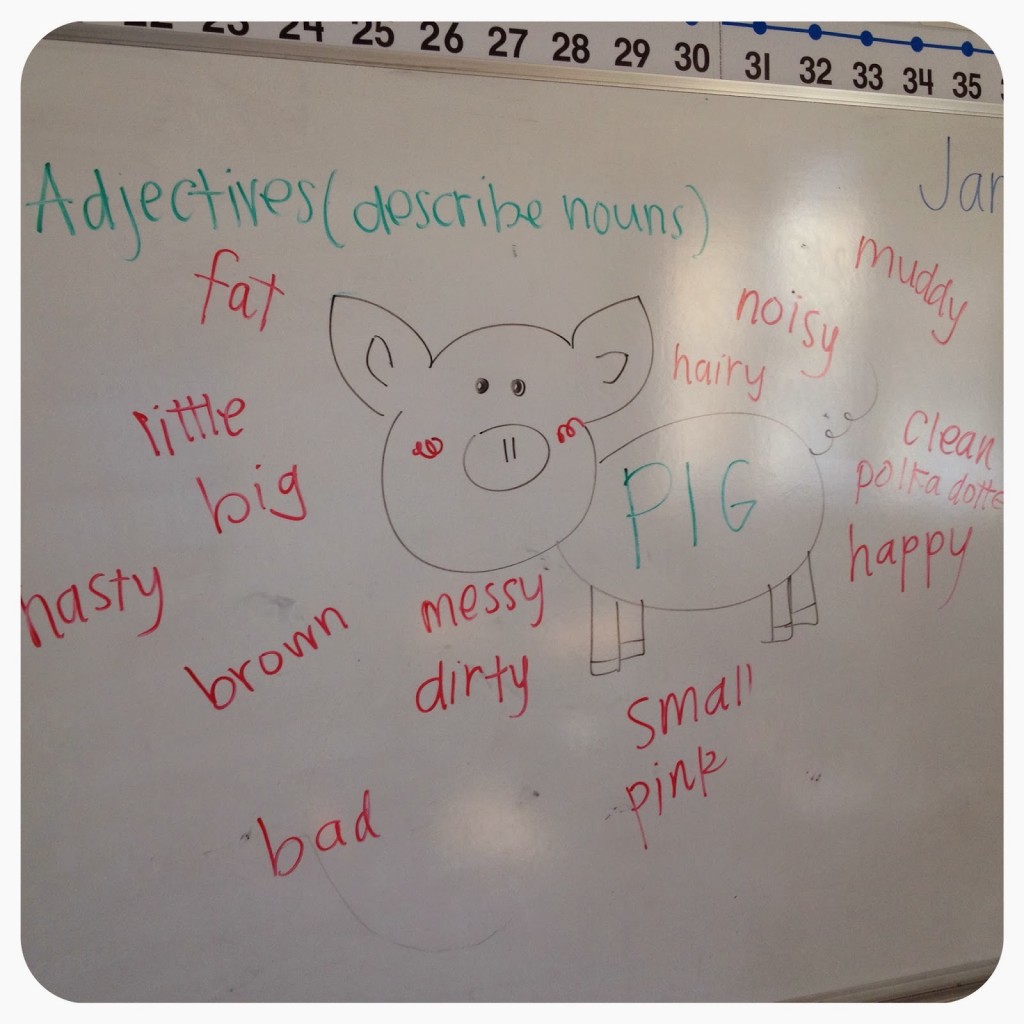 22 23 24 25 26 27 28 29 30 31 32 33 34 35
Jan
Adjectives (describe nouns)
fat
muddy
noisy
hairy
little
clean
big
PIG
polka dotte
happy
nasty
messy
brown
dirty
small
pink
bad